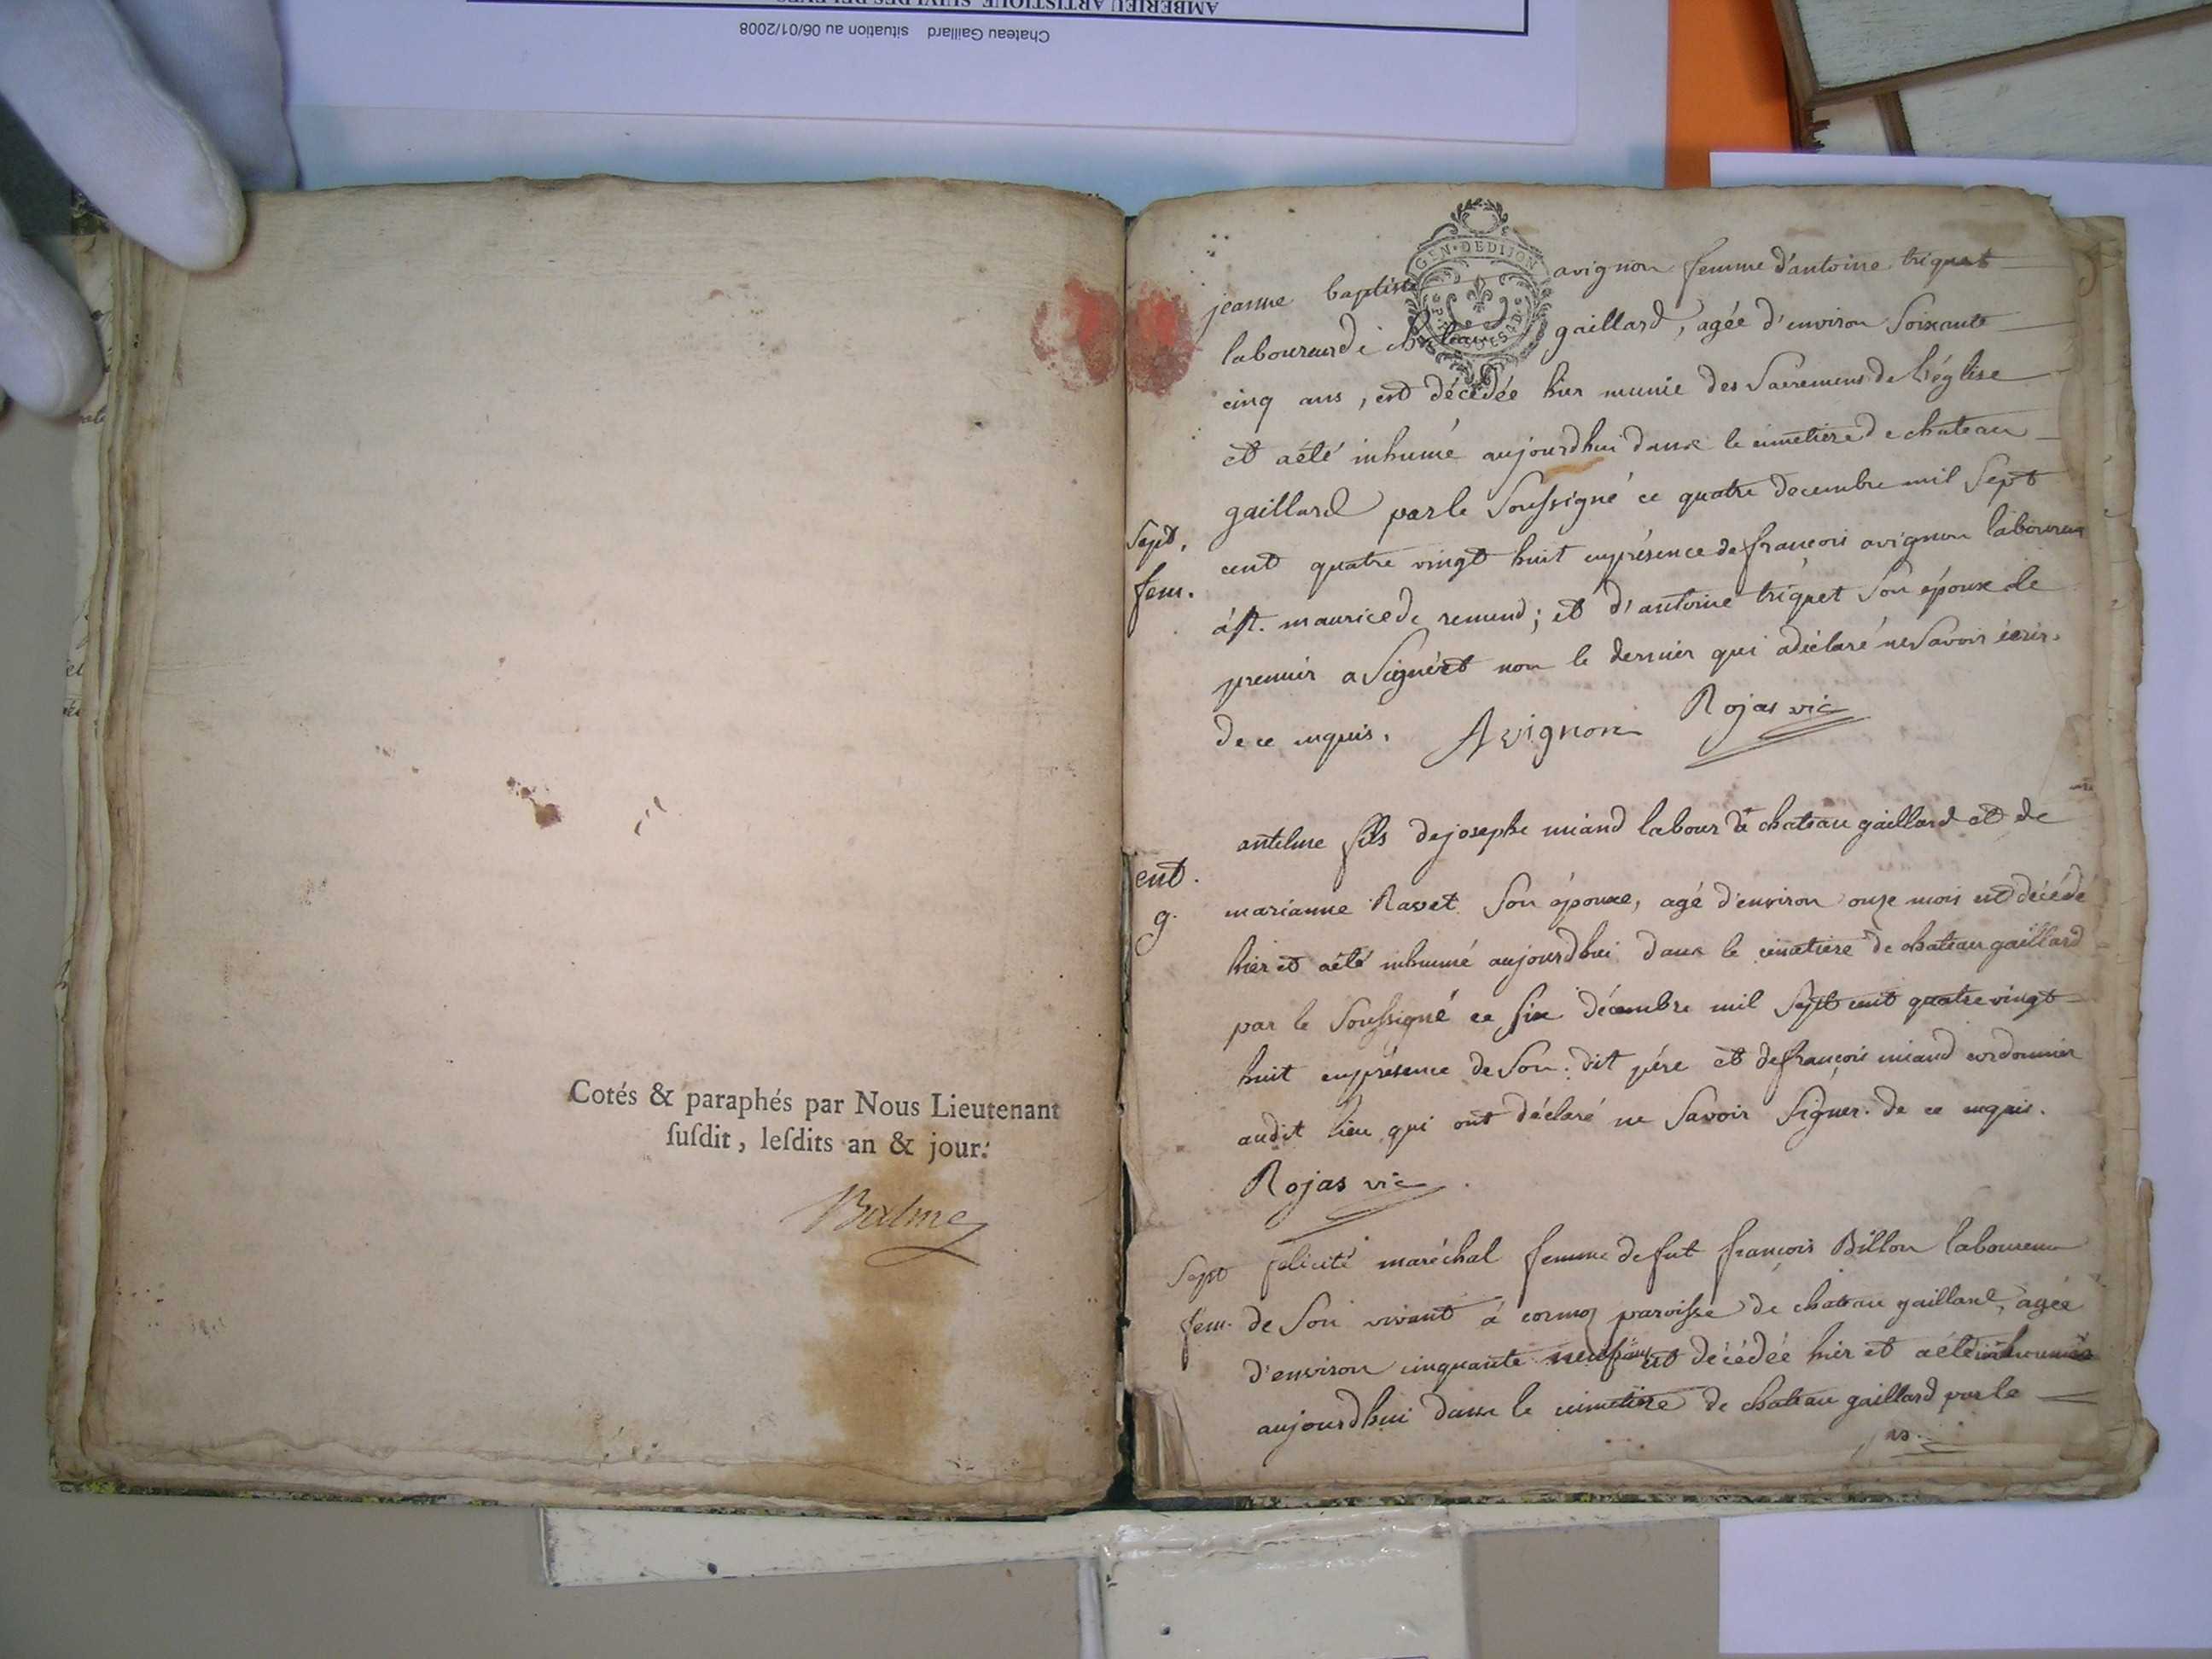 AMBERIEU ARTISTIQUE SUIVI DES RELEVES
Chateau Gaillard situation au 06/01/2008
Cotés & paraphés par Nous Lieutenant
ſuſdit, leſdits an & jour.
Balme
GEN·DEDIJON
jeanne baptiste avignon femme d'antoine triquet
laboureur de chateau gaillard, agée d'environ soixante
cinq ans, est décédée hier munie des sacremens de l'église
et a été inhumé aujourdhui dans le cimetiere de chateau
gaillard par le soussigné ce quatre decembre mil sept
Sept.
cent quatre vingt huit en présence de françois avignon laboureur
fem.
à st. maurice de remend; et d'antoine triquet son époux le
premier a signé et non le dernier qui a déclaré ne savoir écrir.
de ce enquis. Avignon Rojas vic
antelme fils de josephe miand labour de chateau gaillard et de
ent.
marianne Ravet son épouse, agé d'environ onze mois est décédé
g.
hier et a été inhumé aujourdhui dans le cimetiere de chateau gaillard
par le soussigné ce six décembre mil sept cent quatre vingt
huit en présence de son dit pére et de françois miand cordonnier
audit lieu qui ont déclaré ne savoir signer de ce enquis.
Rojas vic
Sept felicité maréchal femme de fut françois Billon laboureur
fem. de son vivant à cormoz paroisse de chateau gaillard, agée
d'environ cinquante neuf ans est décédée hier et a été inhumée
aujourdhui dans le cimetiere de chateau gaillard par le